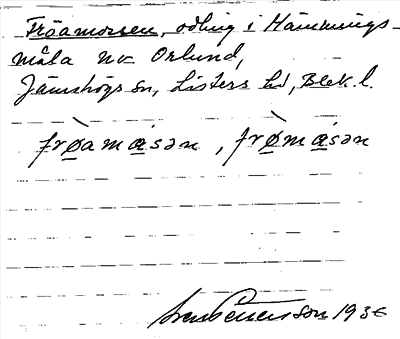 Fröamossen, odling i Hämmings-
måla nv Orlund,
Jämshögs sn, Listers hd, Blek. l.
frøamåsən, frømåsən
Sven Benson 1936